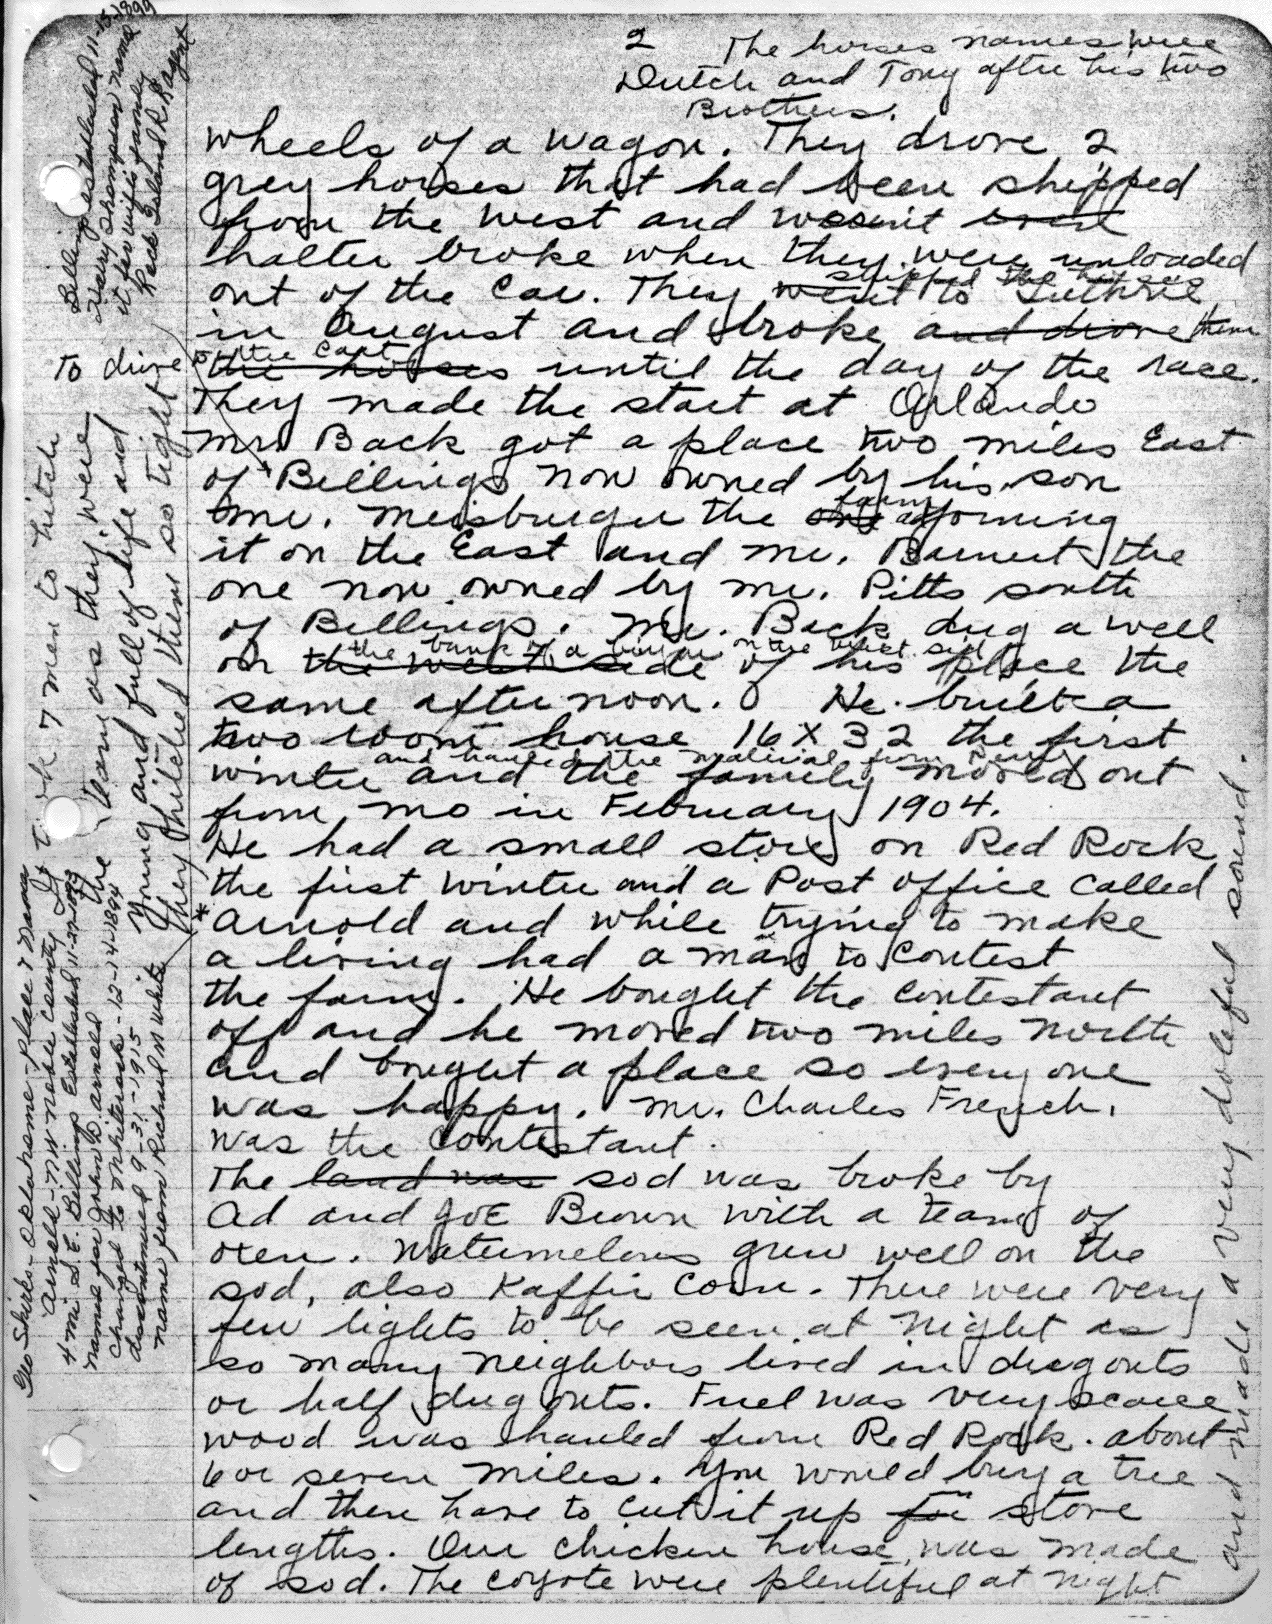 2 The horses names were
Dutch and Tony after his two
Brothers.
wheels of a wagon. They drove 2
grey horses that had been shipped
from the west and wesn't even
halter broke when they were unloaded
out of the car. They went to Guthrie
shipped the horses
in August and broke and drove them
to drive to the cart
the horses until the day of the race.
They made the start at Orlando
Mr. Back got a place two miles East
of Billings now owned by his son
Mr. Meisburger the one adjorning
farm
it on the East and Mr. Barnert the
one now owned by Mr. Pitts south
of Billings. Mr. Back dug a well
on the west side of his place the
the bank of a on the west side
same after noon. He built a
two room house 16 X 32 the first
and hauled the material from Perry
winter and the family moved out
from Mo in February 1904.
He had a small store on Red Rock
the first winter and a Post office called
* Arnold and while trying to make
a living had a man to contest
the farm. He bought the contestant
off and he moved two miles north
and bought a place so every one
was happy. Mr. Charles French,
was the contestant.
The land was sod was broke by
Ad and JoE Brown with a team of
oxen. Watermelons grew well on the
sod, also Kaffir Corn. There were very
few lights to be seen at night as
so many neighbors lived in dugouts
or half dug outs. Fuel was very scarce
wood was hauled from Red Rock. about
6 or seven miles. You would buy a tree
and then have to cut it up for stove
lengths. Our chicken house was made
of sod. The coyote were plentiful at night
and made a very doleful sound.
Billings established 11-15-1899
Harry Thompson named
it for wifes family
Rock Island RR agent
It took 7 men to hitch
the team as they were
young and full of life and
They hitched them so tight
Geo Shirk - Oklahoma - place names
Arnold - NW Noble County
4 mi S.E. Billings Established 11-27-1893
named for John D. Arnold
changed to Whiterock - 12-14-1894
discontinued 9-31-1915
name from Richard M White